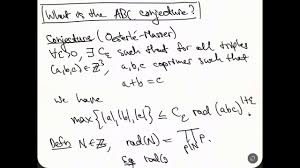 What is the ABC conjecture?
Conjecture (Oesterlé-Masser)
∀ε>0, ∃ C_ε such that for all triples
(a,b,c) ∈ ℤ³, a,b,c coprimes such that
a+b = c
we have
max{|a|,|b|,|c|} ≤ C_ε rad(abc)^{1+ε}
Defn: N∈ℤ, rad(N) = ∏_{p|N} p.
Eg rad(